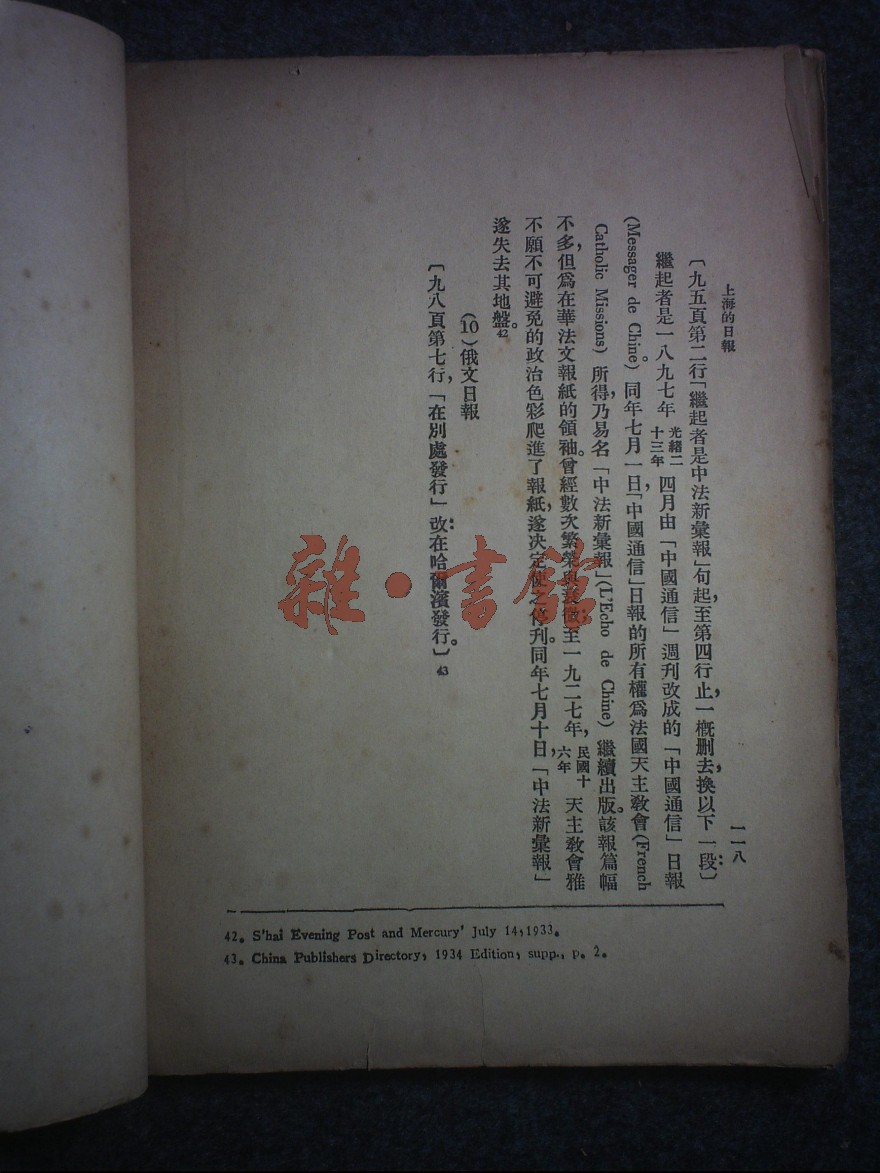 上海的日報
一一八
〔九五頁第二行「繼起者是中法新彙報」句起，至第四行止，一概删去，換以下一段：〕
繼起者是一八九七年光緒二十三年四月由「中國通信」週刊改成的「中國通信」日報
(Messager de Chine)。同年七月一日，「中國通信」日報的所有權爲法國天主教會(French
Catholic Missions) 所得，乃易名「中法新彙報」(L'Echo de Chine) 繼續出版。該報篇幅
不多，但爲在華法文報紙的領袖。曾經數次繁榮與衰微；至一九二七年，民國十六年，天主教會雅
不願不可避免的政治色彩爬進了報紙，遂决定使之停刊。同年七月十日，「中法新彙報」
遂失去其地盤。42
(10) 俄文日報
〔九八頁第七行，「在別處發行」改：在哈爾濱發行。〕43
42. S'hai Evening Post and Mercury' July 14, 1933.
43. China Publishers Directory, 1934 Edition, supp., p. 2.
雜·書館